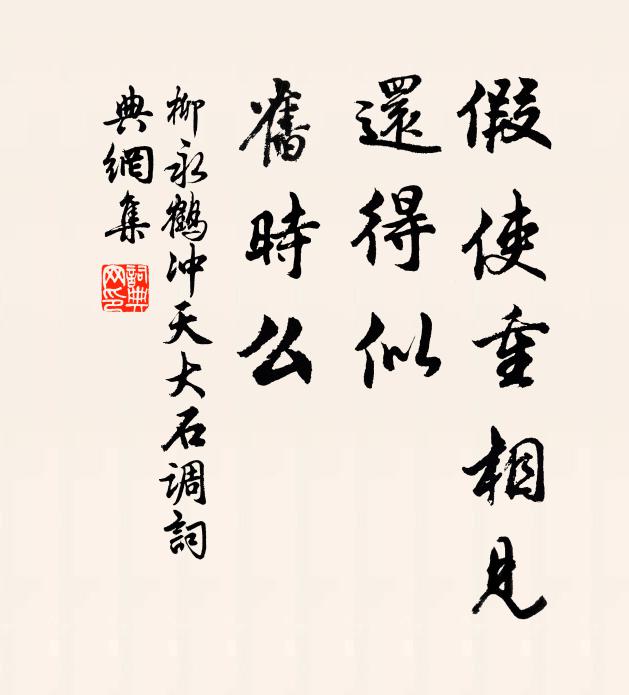 假使重相見
還得似
舊時么
柳永鶴冲天大石调詞
典網集
詞典網印